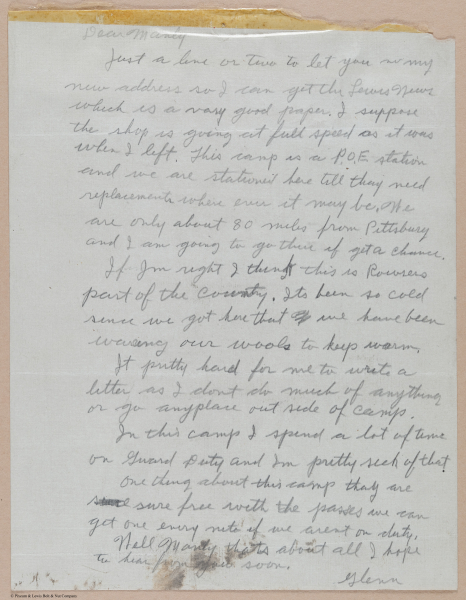 Dear Manly
Just a line or two to let you no my
new address so I can get the Lewis News
which is a vary good paper. I suppose
the shop is going at full speed as it was
when I left. This camp is a P.O.E. station
and we are stationed here till they need
replacements where ever it may be. We
are only about 80 miles from Pittsburg
and I am going to go there if get a chance.
If I'm right I think this is Rowsers
part of the country. Its been so cold
since we got here that we have been
wearing our wools to keep warm.
It pretty hard for me to write a
letter as I dont do much of anything
or go anyplace out side of camp.
In this camp I spend a lot of time
on Guard Duty and Im pretty sick of that
One thing about this camp they are
sure free with the passes we can
get one every nite if we arent on duty.
Well Manly thats about all I hope
to hear from you soon.
Glenn
© Pheoll & Lewis Bolt & Nut Company